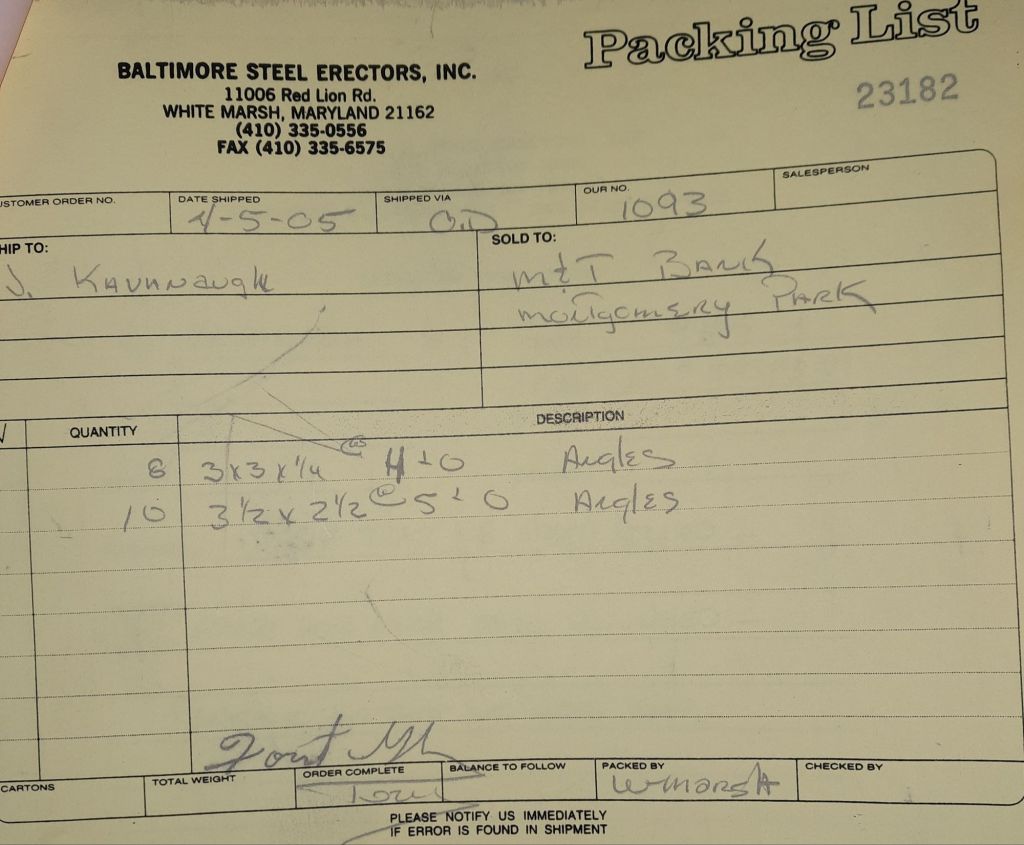 Packing List
BALTIMORE STEEL ERECTORS, INC.
11006 Red Lion Rd.
WHITE MARSH, MARYLAND 21162
(410) 335-0556
FAX (410) 335-6575
23182
USTOMER ORDER NO. DATE SHIPPED SHIPPED VIA OUR NO. SALESPERSON
4-5-05 O.D 1093
HIP TO: SOLD TO:
J. Kavanaugh M&T Bank
Montgomery Park
QUANTITY DESCRIPTION
8 3x3x1/4 @ 4-0 Angles
10 3 1/2 x 2 1/2 @ 5-0 Angles
CARTONS TOTAL WEIGHT ORDER COMPLETE BALANCE TO FOLLOW PACKED BY CHECKED BY
W-Marsh
PLEASE NOTIFY US IMMEDIATELY
IF ERROR IS FOUND IN SHIPMENT